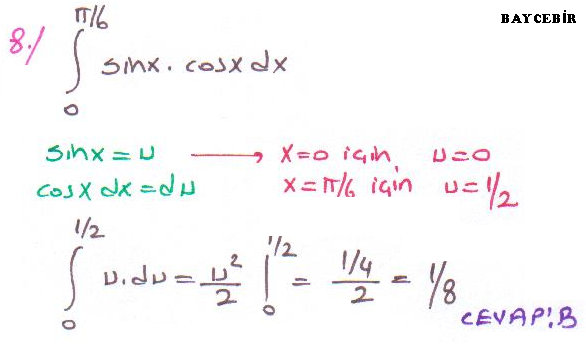 BAYCEBİR
8./ ∫₀^π/6 sinx . cosx dx
sinx = u ⟶ x=0 için, u=0
cosx dx = du x=π/6 için u=1/2
∫₀^1/2 u.du = u²/2 |₀^1/2 = (1/4)/2 = 1/8
CEVAP:B